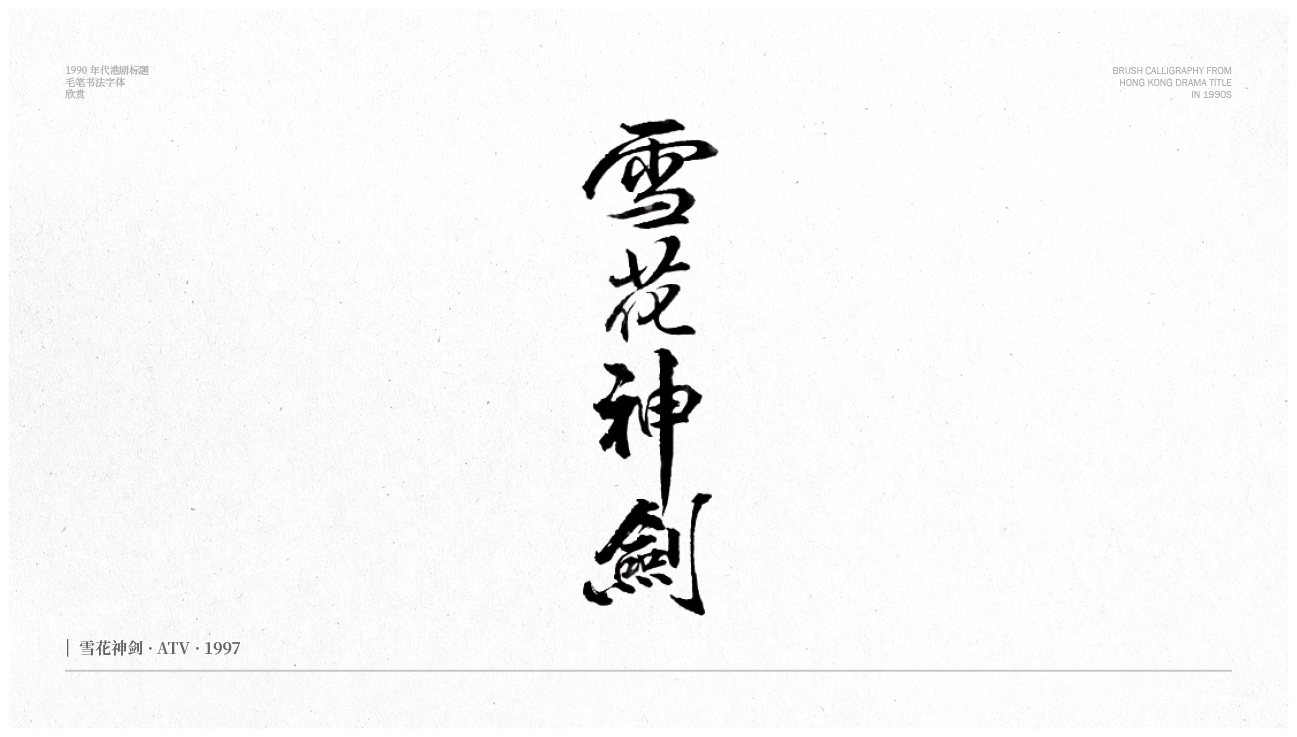 1990 年代港剧标题
毛笔书法字体
欣赏
BRUSH CALLIGRAPHY FROM
HONG KONG DRAMA TITLE
IN 1990S
雪花神劍
雪花神剑 · ATV · 1997